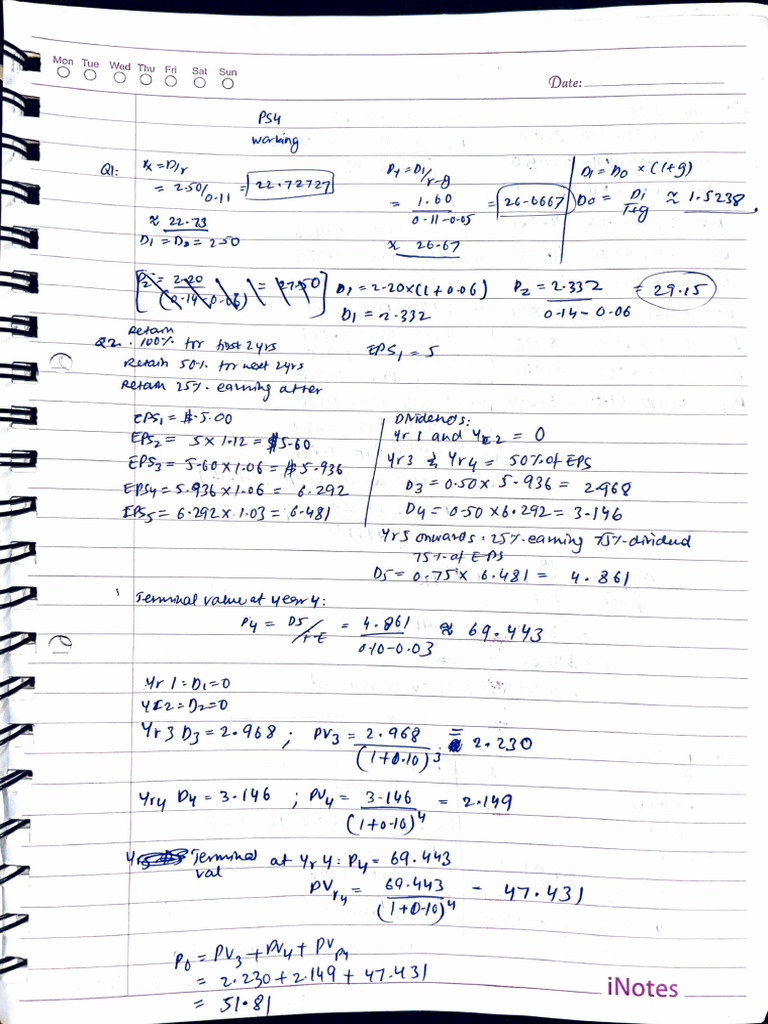 Mon Tue Wed Thu Fri Sat Sun
Date:
PS4
working
Q1:
= D/r
= 2.50/0.11 = 22.72727
≈ 22.73
D1 = D2 = 2.50
P4 = D1/r-g
= 1.60/0.11-0.05 = 26.6667
≈ 26.67
D1 = D0 × (1+g)
D0 = D1/1+g ≈ 1.5238
P2 = 2.20/(0.14-0.06) = 27.50
D1 = 2.20×(1+0.06)
D1 = 2.332
P2 = 2.332/0.14-0.06 = 29.15
Retain
Q2. 100% for first 2yrs
EPS1 = 5
Retain 50% for next 2yrs
Retain 25% earning after
EPS1 = $5.00
EPS2 = 5×1.12 = $5.60
EPS3 = 5.60×1.06 = $5.936
EPS4 = 5.936×1.06 = 6.292
EPS5 = 6.292×1.03 = 6.481
Dividends:
Yr 1 and Yr 2 = 0
Yr3 & Yr4 = 50% of EPS
D3 = 0.50× 5.936 = 2.968
D4 = 0.50×6.292 = 3.146
Yr5 onwards: 25% earning 75% dividend
75% of EPS
D5 = 0.75× 6.481 = 4.861
Terminal value at year 4:
P4 = D5/r-E = 4.861/0.10-0.03 ≈ 69.443
Yr 1: D1=0
Yr2: D2=0
Yr3 D3 = 2.968 ; PV3 = 2.968/(1+0.10)3 = 2.230
Yr4 D4 = 3.146 ; PV4 = 3.146/(1+0.10)4 = 2.149
Terminal val at Yr 4: P4 = 69.443
PVr4 = 69.443/(1+0.10)4 - 47.431
P0 = PV3 + PV4 + PVP4
= 2.230 + 2.149 + 47.431
= 51.81
iNotes